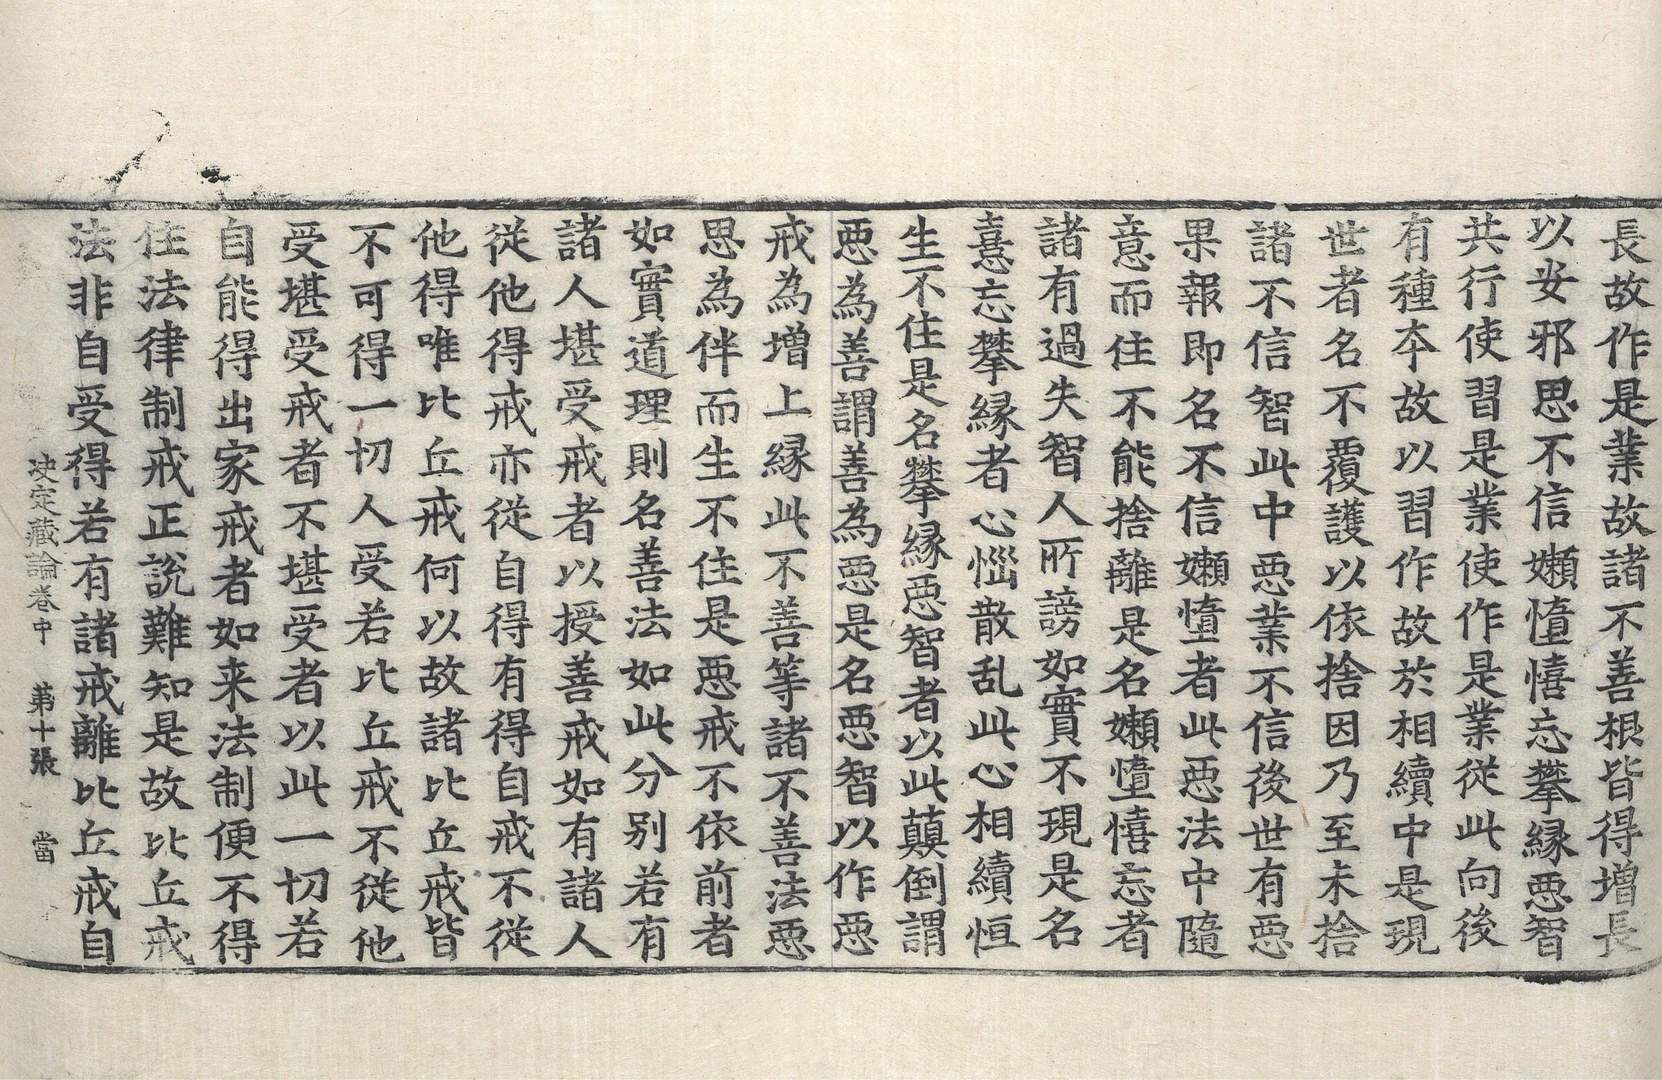 長故作是業故諸不善根皆得增長
以安邪思不信嬾憧憘忘攀縁惡智
共行使習是業使作是業從此向後
有種夲故以習作故於相續中是現
世者名不覆護以依捨因乃至未捨
諸不信智此中惡業不信後世有惡
果報即名不信嬾憧者此惡法中隨
意而住不能捨離是名嬾憧憘忘者
諸有過失智人所謗如實不現是名
憙忘攀縁者心惱散乱此心相續恒
生不住是名攀縁惡智者以此顛倒謂
惡為善謂善為惡是名惡智以作惡
戒為增上縁此不善等諸不善法惡
思為伴而生不住是惡戒不依前者
如實道理則名善法如此分別若有
諸人堪受戒者以授善戒如有諸人
從他得戒亦從自得有得自戒不從
他得唯比丘戒何以故諸比丘戒皆
不可得一切人受若比丘戒不從他
受堪受戒者不堪受者以此一切若
自能得出家戒者如来法制便不得
住法律制戒正説難知是故比丘戒
法非自受得若有諸戒離比丘戒自
决定藏論卷中 第十張 當